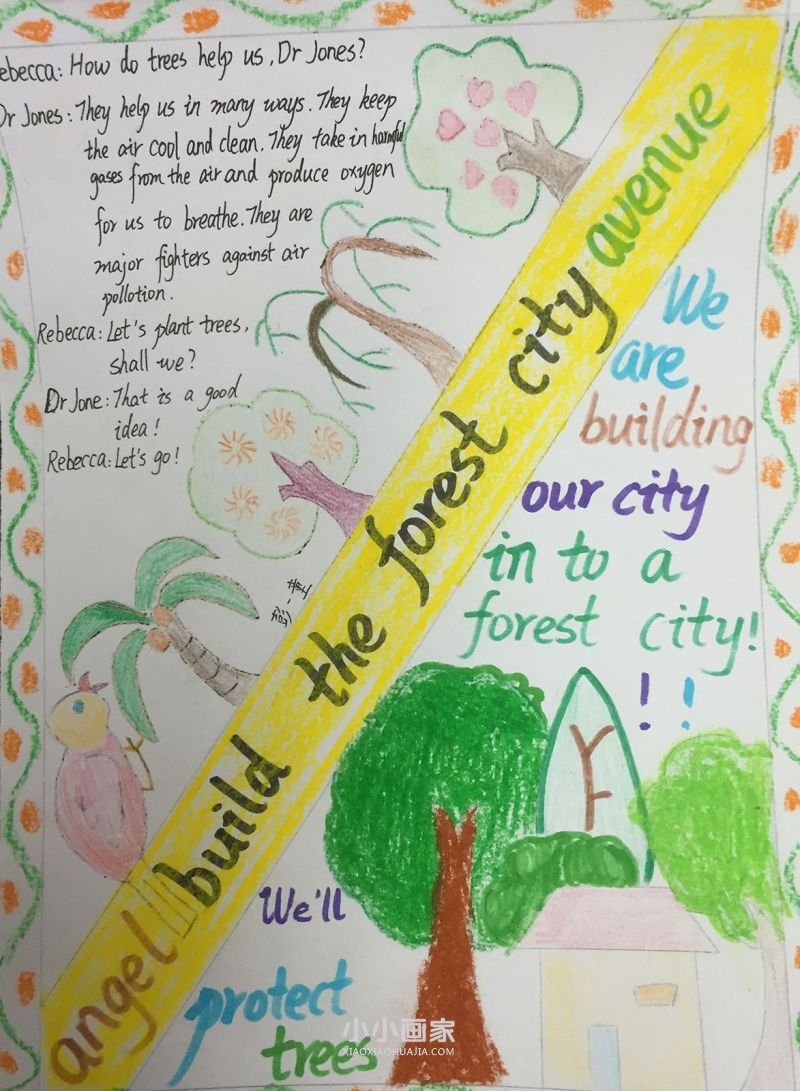 Rebecca: How do trees help us, Dr Jones?
Dr Jones: They help us in many ways. They keep
the air cool and clean. They take in harmful
gases from the air and produce oxygen
for us to breathe. They are
major fighters against air
pollotion.
Rebecca: Let's plant trees,
shall we?
Dr Jone: That is a good
idea!
Rebecca: Let's go!
angel build the forest city avenue
We
are
building
our city
in to a
forest city!
! !
We'll
protect
trees
小小画家
XIAOXIAOHUAJIA.COM